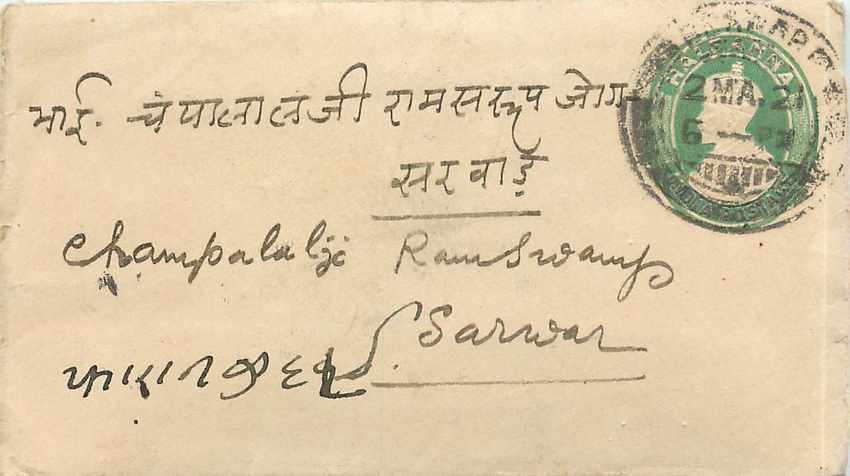 HALF ANNA
2 MA. 21
6 — PM
INDIA POSTAGE
भाई. चंपालालजी रामसरूप जोग
सरवाड़
Champalalji Ramswarup
Sarwar